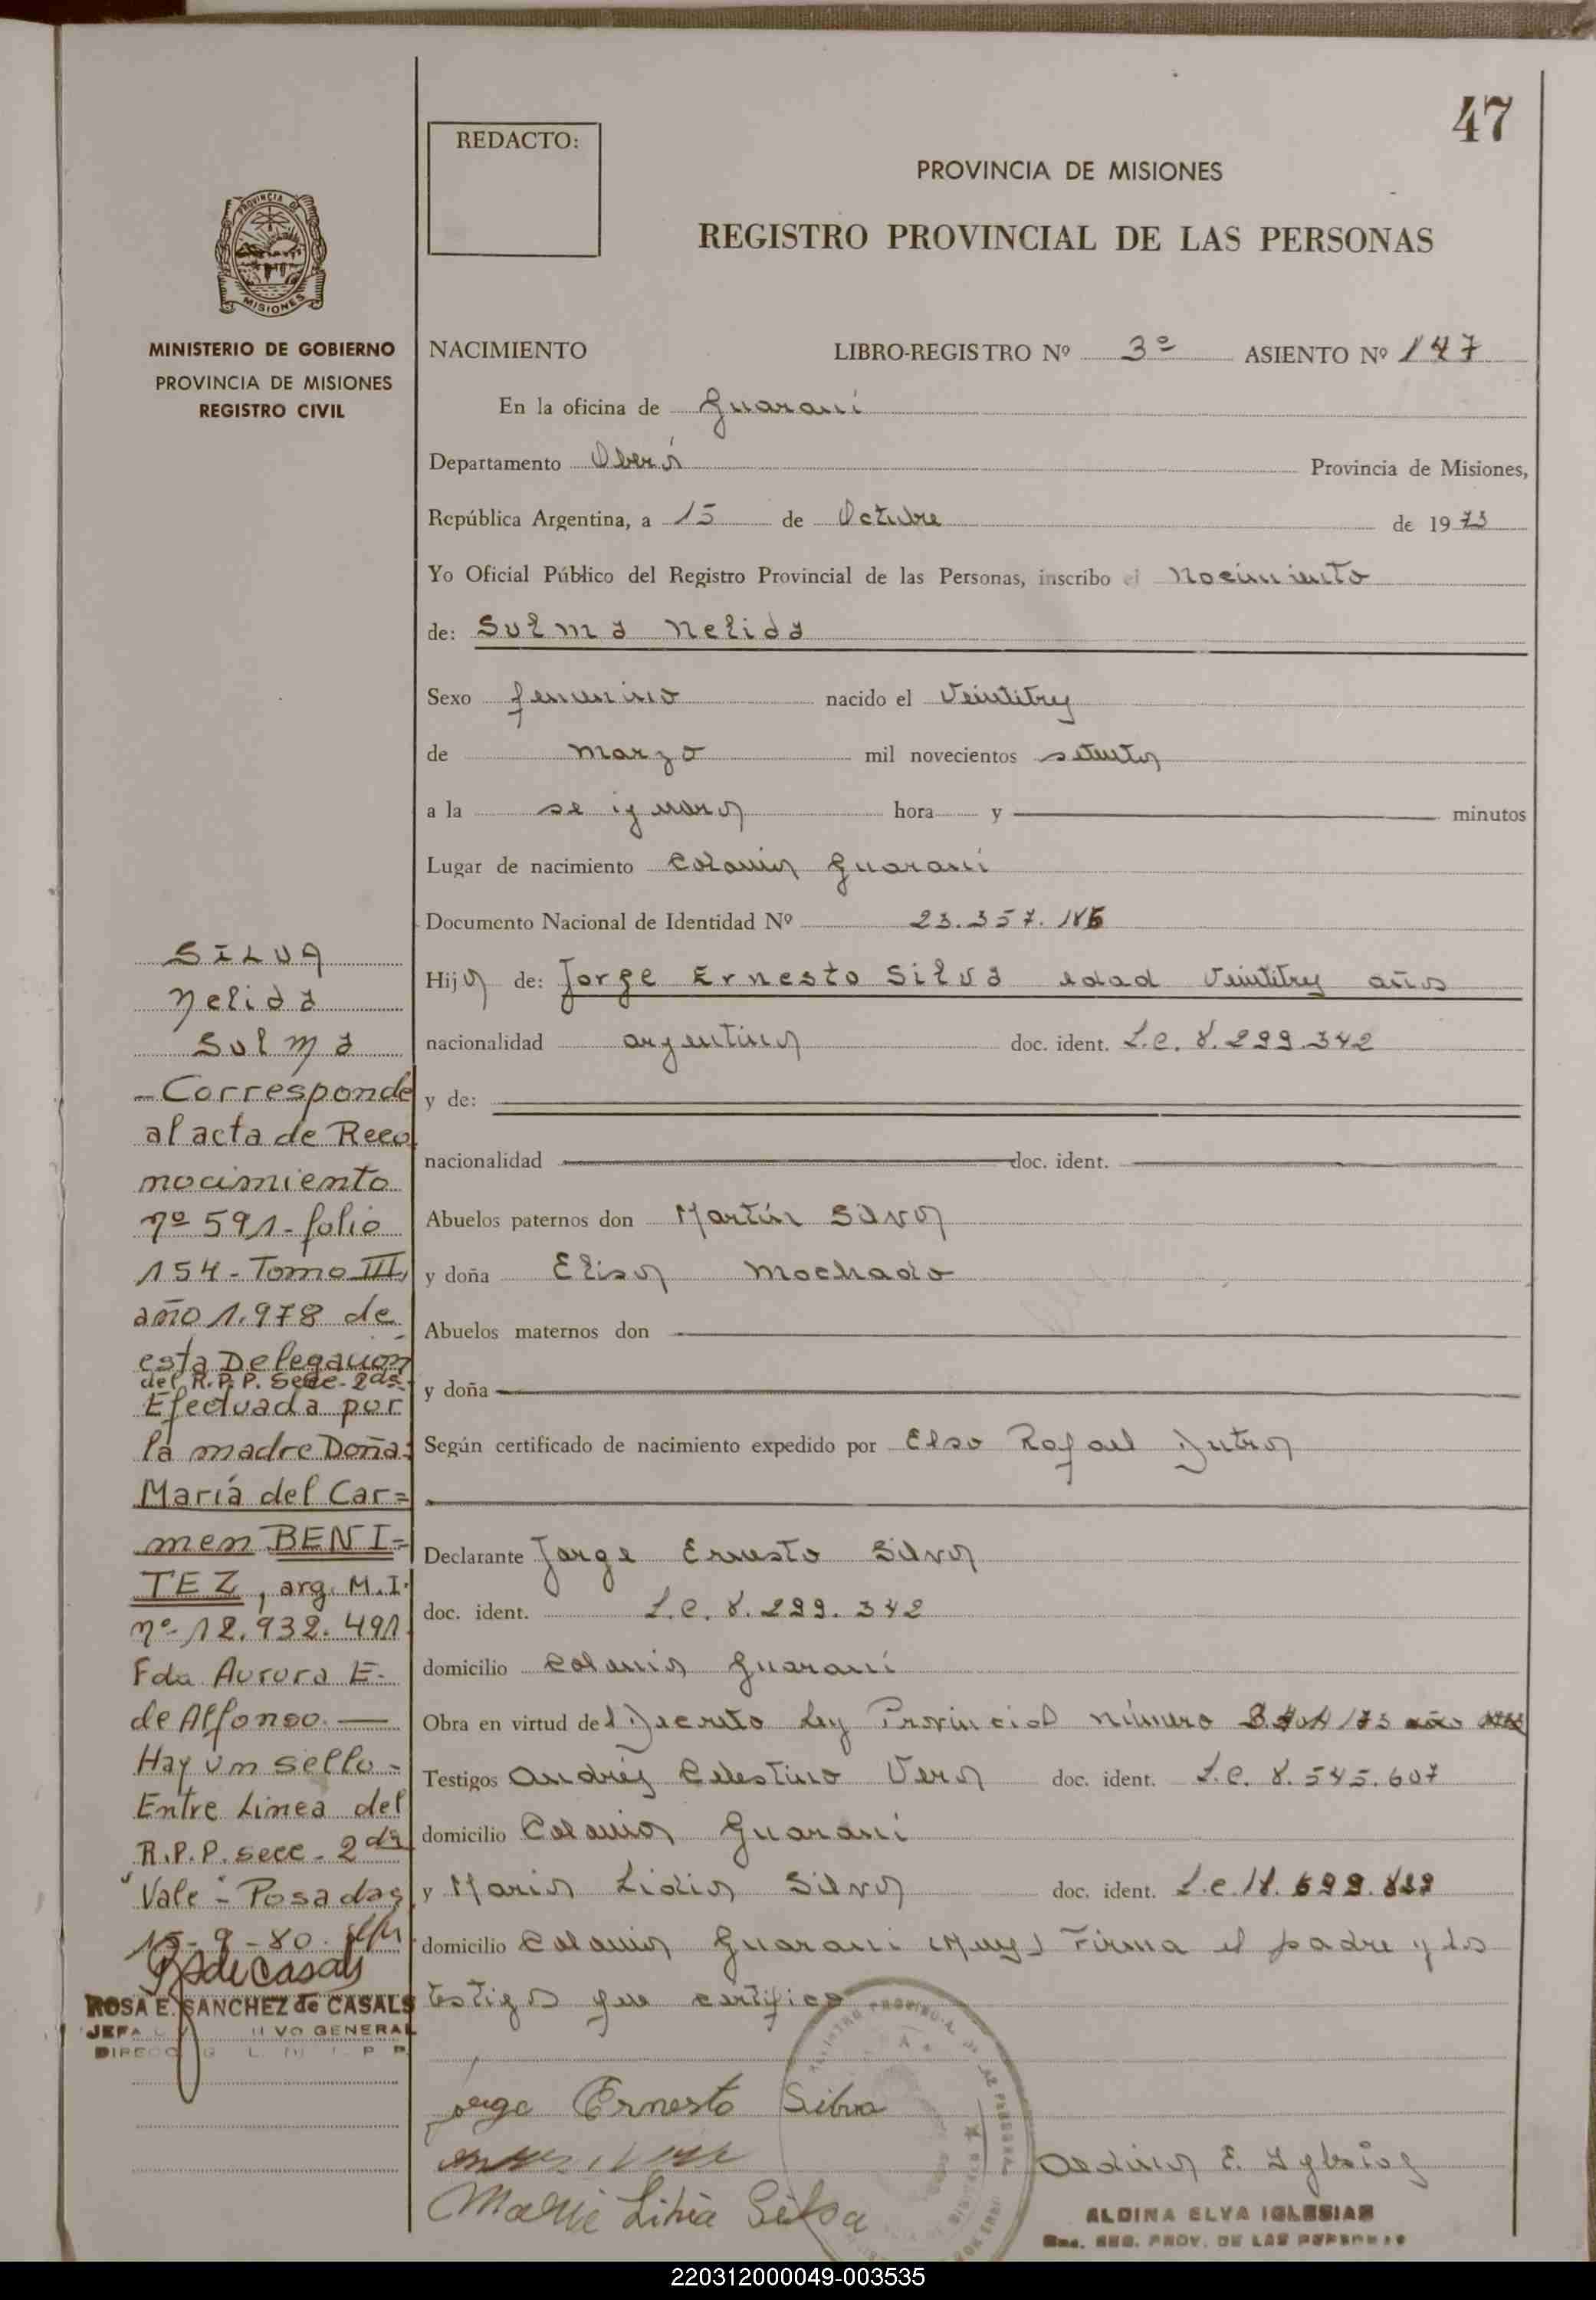 47
REDACTO:
PROVINCIA DE MISIONES
REGISTRO PROVINCIAL DE LAS PERSONAS
PROVINCIA DE
MISIONES
MINISTERIO DE GOBIERNO
PROVINCIA DE MISIONES
REGISTRO CIVIL
NACIMIENTO LIBRO-REGISTRO Nº 3º ASIENTO Nº 147
En la oficina de Guaraní
Departamento Oberá Provincia de Misiones,
República Argentina, a 15 de Octubre de 1973
Yo Oficial Público del Registro Provincial de las Personas, inscribo el Nacimiento
de: Sulma Nelida
Sexo femenino nacido el Veintitrés
de marzo mil novecientos setenta
a la se ignora hora y minutos
Lugar de nacimiento Colonia Guaraní
Documento Nacional de Identidad Nº 23.357.186
Hija de: Jorge Ernesto Silva edad Veintitrés años
nacionalidad argentina doc. ident. L.E. 8.299.342
y de:
nacionalidad doc. ident.
Abuelos paternos don Martín Silva
y doña Elisa Machado
Abuelos maternos don
y doña
Según certificado de nacimiento expedido por Elso Rafael Dutra
Declarante Jorge Ernesto Silva
doc. ident. L.E. 8.299.342
domicilio Colonia Guaraní
Obra en virtud del Decreto Ley Provincial número
Testigos Andrés Celestino Vera doc. ident. L.E. 8.545.607
domicilio Colonia Guaraní
y Maria Lidia Silva doc. ident.
domicilio Colonia Guaraní Firma el padre y los
testigos que certifico
Jorge Ernesto Silva
Maria Lidia Silva
Aldina E. Iglesias
ALDINA ELVA IGLESIAS
REG. PROV. DE LAS PERSONAS
SILVA
Nelida
Sulma
- Corresponde
al acta de Reco
nocimiento
nº 591 - folio
154 - Tomo III,
año 1.978 de
esta Delegación
del R.P.P. Secc - 2da.
Efectuada por
la madre Doña:
María del Car=
men BENI=
TEZ, arg. M.I.
nº 12.932.491
Fda Aurora E.
de Alfonso. —
Hay un sello -
Entre Linea del
R.P.P. secc - 2da
"Vale" - Posadas,
15 - 9 - 80.
ROSA E. SANCHEZ de CASALS
GENERAL
220312000049-003535